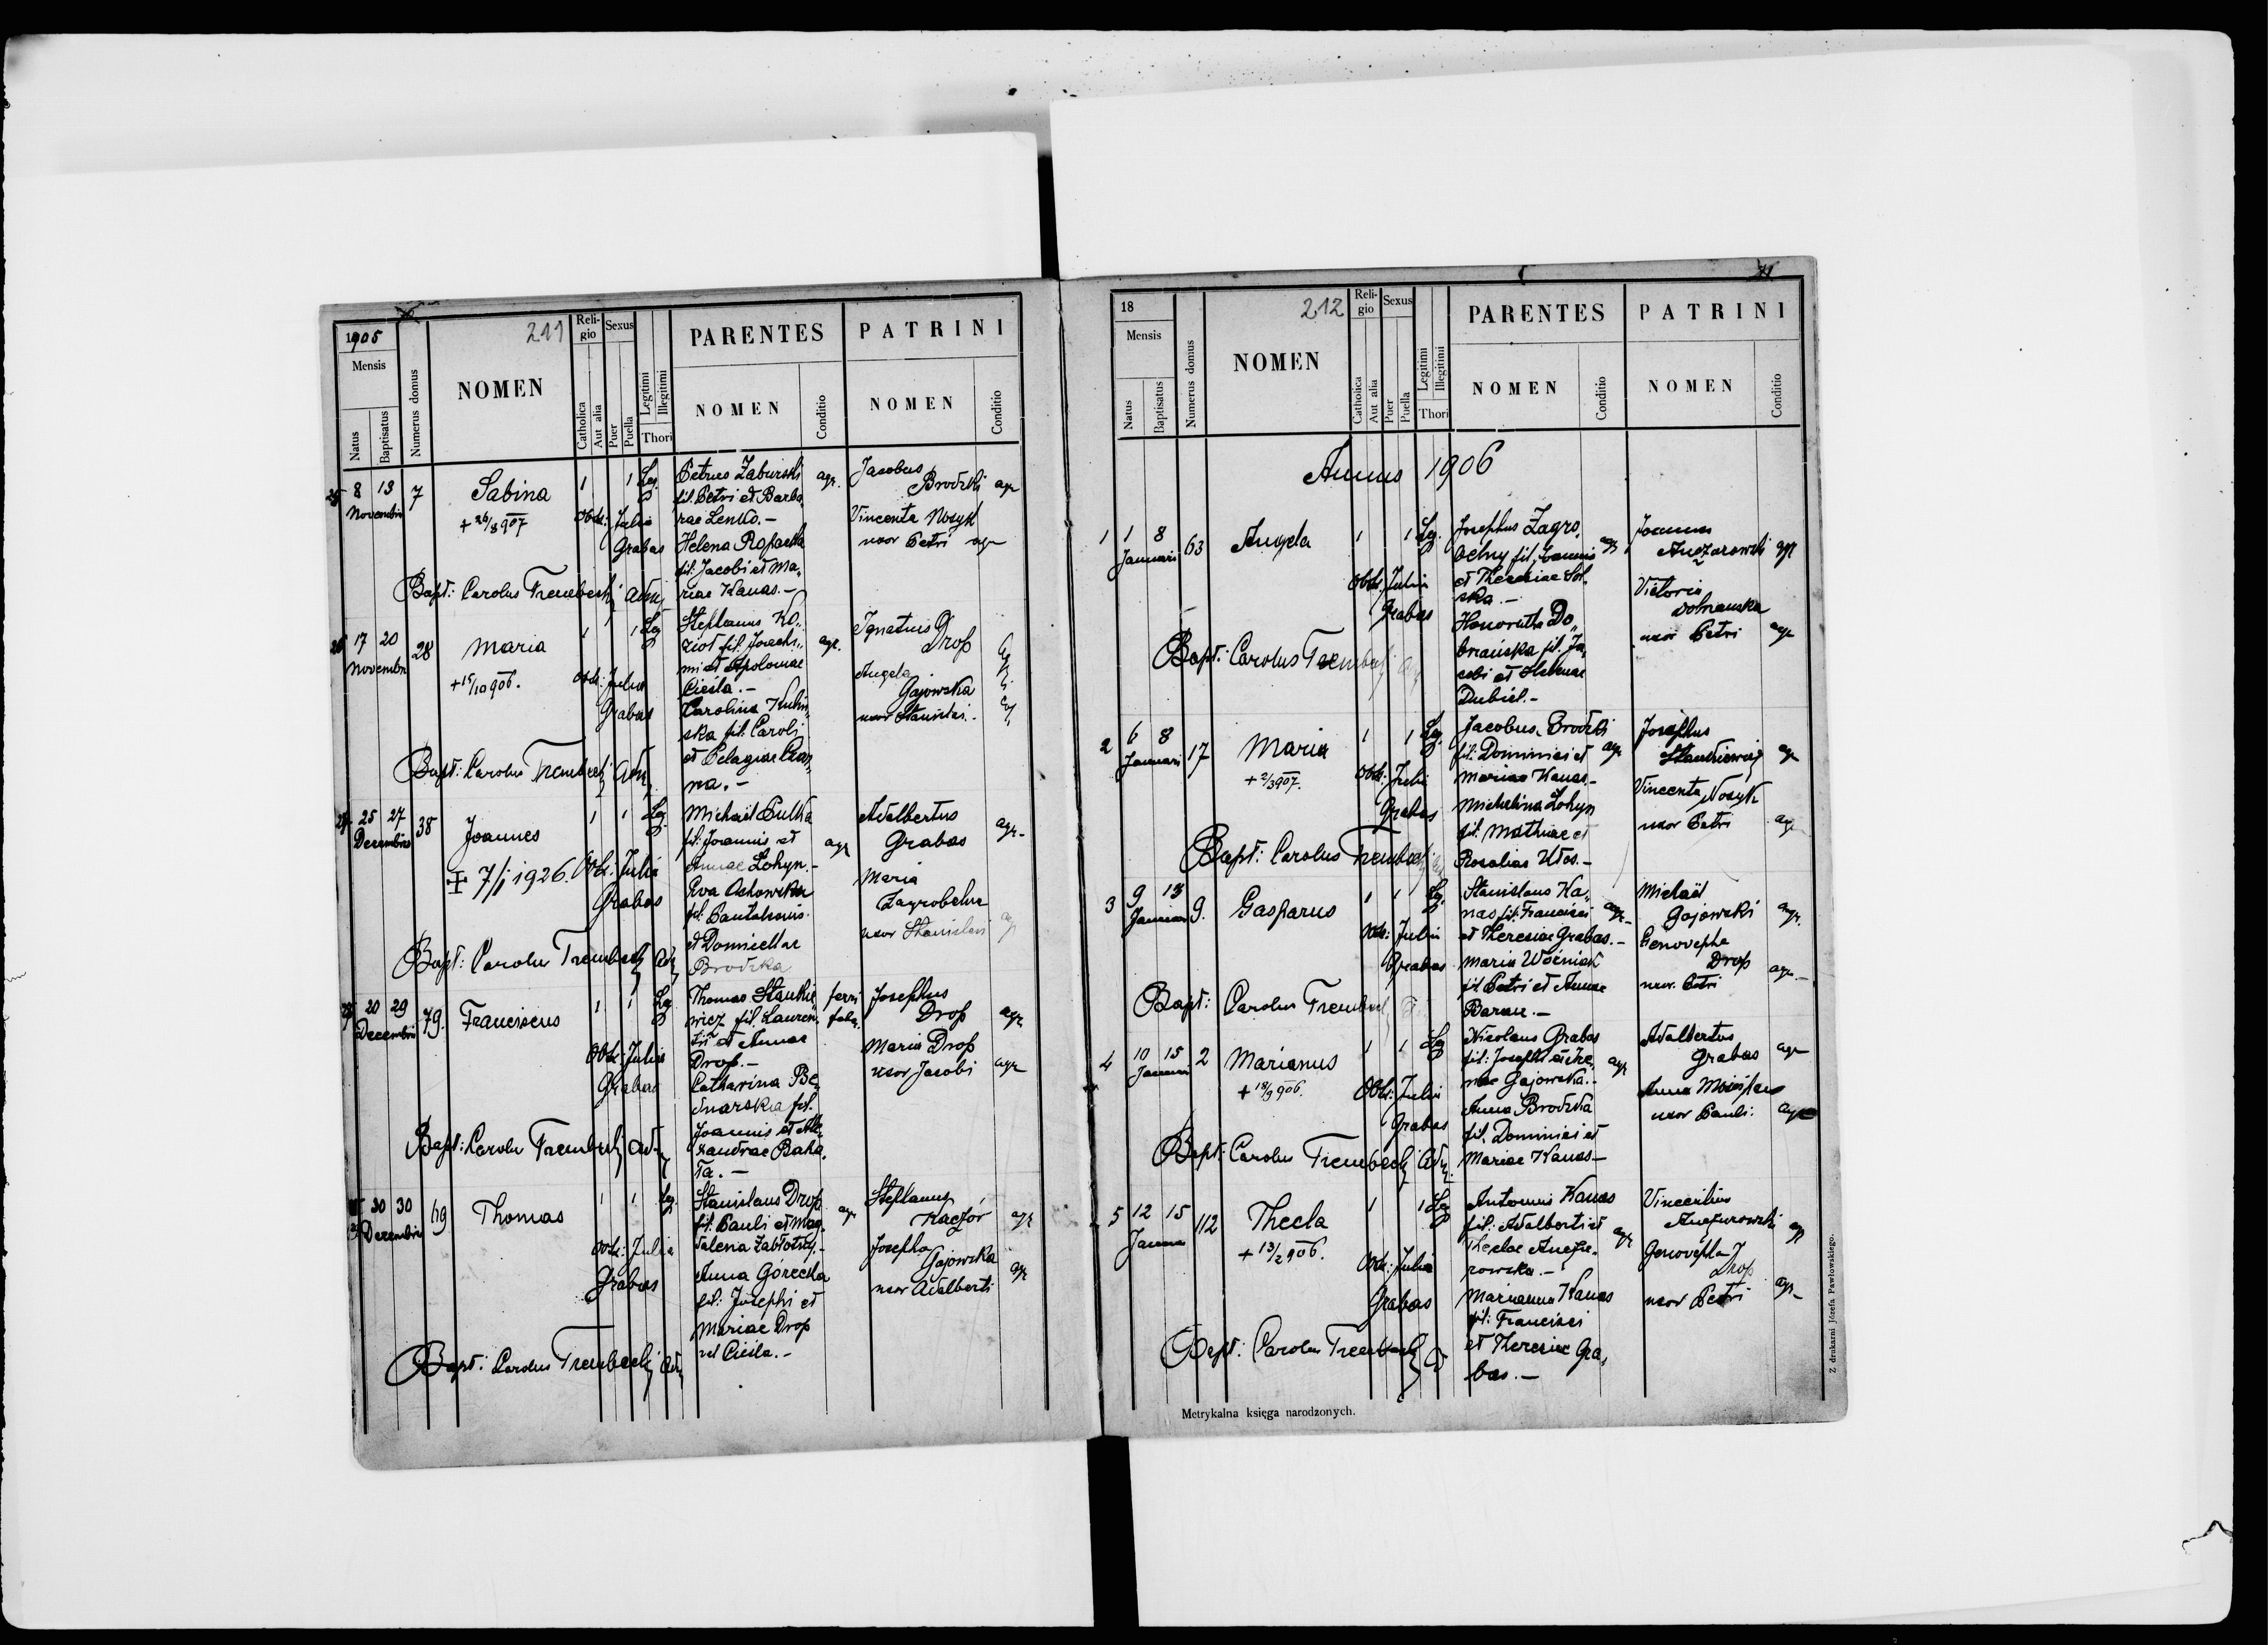 1905
211
Mensis
Natus
Baptisatus
Numerus domus
NOMEN
Religio
Catholica
Aut alia
Sexus
Puer
Puella
Legitimi
Illegitimi
Thori
PARENTES
NOMEN
Conditio
PATRINI
NOMEN
Conditio
8 13
Novembris
7
Sabina
+ 26/8 907
1
1 Leg.
Obst: Julia
Grabas
Petrus Zaburski
fil. Petri et Barba
rae Lenko. -
Helena
fil: Jacobi et Ma„
riae Kanas. -
agr.
Jacobus
Brodzki agr
Vincenta Nosyk
uxor Petri agr
Bapt: Carolus Trembecki Adm
17 20
Novembr
28
Maria
+ 15/10 906.
1
1 Leg
Obst: Julia
Grabas
Stephanus Ko„
ziol fil. Joachi„
mi et Apoloniae
Cieśla. -
Carolina
ska fil: Caroli
et Pelagiae Czar„
na. -
agr.
Ignatius
Drop
Angela
Gajowska
uxor Stanislai.
Bapt: Carolus Trembecki Adm
25 27
Decembris
38
Joannes
+ 7/I 1926.
1
1 Leg
Obst: Julia
Grabas
Michael Pulka
fil: Joannis et
Annae Lohyn. -
Eva
fil. Pantaleonis
et Domicellae
Brodzka
agr
Adalbertus
Grabas agr-
Maria
Zagrobelna
uxor Stanislai agr
Bapt: Carolus Trembecki Adm
28
20 29
Decembris
79.
Franciscus
1
1 Leg
Obst: Julia
Grabas
Thomas Stankie„
wicz fil. Lauren„
tii et Annae
Drop. -
Catharina Be„
dnarska fil.
Joannis et Ale„
xandrae Baka„
ła. -
ferri
fabr.
Josephus
Drop agr
Maria Drop
uxor Jacobi agr
Bapt: Carolus Trembecki Adm
30 30
Decembris
69
Thomas
1
1 Leg.
Obst: Julia
Grabas
Stanislaus Drop
fil. Pauli et Mag„
dalena Zabłotny. -
Anna Górecka
fil: Josephi et
Mariae Drop
vel Cieśla. -
agr
Stephanus
Kaczór agr
Josepha
Gajowska
uxor Adalberti agr
Bapt: Carolus Trembecki Adm
18
212
Mensis
Natus
Baptisatus
Numerus domus
NOMEN
Religio
Catholica
Aut alia
Sexus
Puer
Puella
Legitimi
Illegitimi
Thori
PARENTES
NOMEN
Conditio
PATRINI
NOMEN
Conditio
Annus 1906
1
1 8
Januari
63
Angela
1
1 Leg.
Obst. Julia
Grabas
Josephus Zagro„
belny fil. Joannis
et Theresiae Sol„
ska. -
Honorata Do„
brańska fil. Ja„
cobi et Helenae
Dubiel. -
agr
Joannes
agr
Victoria
Dobrańska
uxor Petri agr
Bapt: Carolus Trembecki
2
6 8
Januari
17
Maria
+ 2/3 907.
1
1 Leg.
Obst: Julia
Grabas
Jacobus Brodzki
fil: Dominici et
Mariae Kanas. -
Michalina Lohyn
fil. Mathiae et
Rosalias Kłos. -
agr
Josephus
Stankiewicz agr
Vincenta Nosyk
uxor Petri agr
Bapt: Carolus Trembecki
3
9 13
Januari
9.
Gasparus
1
1 Leg.
Obst: Julia
Grabas
Stanislaus Ka„
nas fil. Francisci
et Theresiae Grabas. -
Maria Woźniak
fil. Petri et Annae
Baran. -
agr
Michaël
Gajowski agr.
Genovepha
Drop
uxor. Petri agr.-
Bapt: Carolus Trembecki
4
10 15
Januari
2
Marianus
+ 18/9 906.
1
1 Leg
Obst: Julia
Grabas
Nicolaus Grabas
fil: Josephi et Ire„
nae Gajowska. -
Anna Brodzka
fil. Dominici et
Mariae Kanas -
agr
Adalbertus
Grabas agr
Anna
uxor Pauli: agr
Bapt: Carolus Trembecki Adm.
5
12 15
Januar
112
Thecla
+ 13/2 906.
1
1 Leg
Obst: Julia
Grabas
Antonius Kanas
fil: Adalberti et
Theclae
rowska. -
Marianna Kanas
fil: Francisci
et Theresiae Gra„
bas. -
agr
Vincentius
agr
Genovepha
Drop
uxor Petri agr-
Bapt: Carolus Trembecki
Metrykalna księga narodzonych.
Z drukarni Józefa Pawłowskiego.